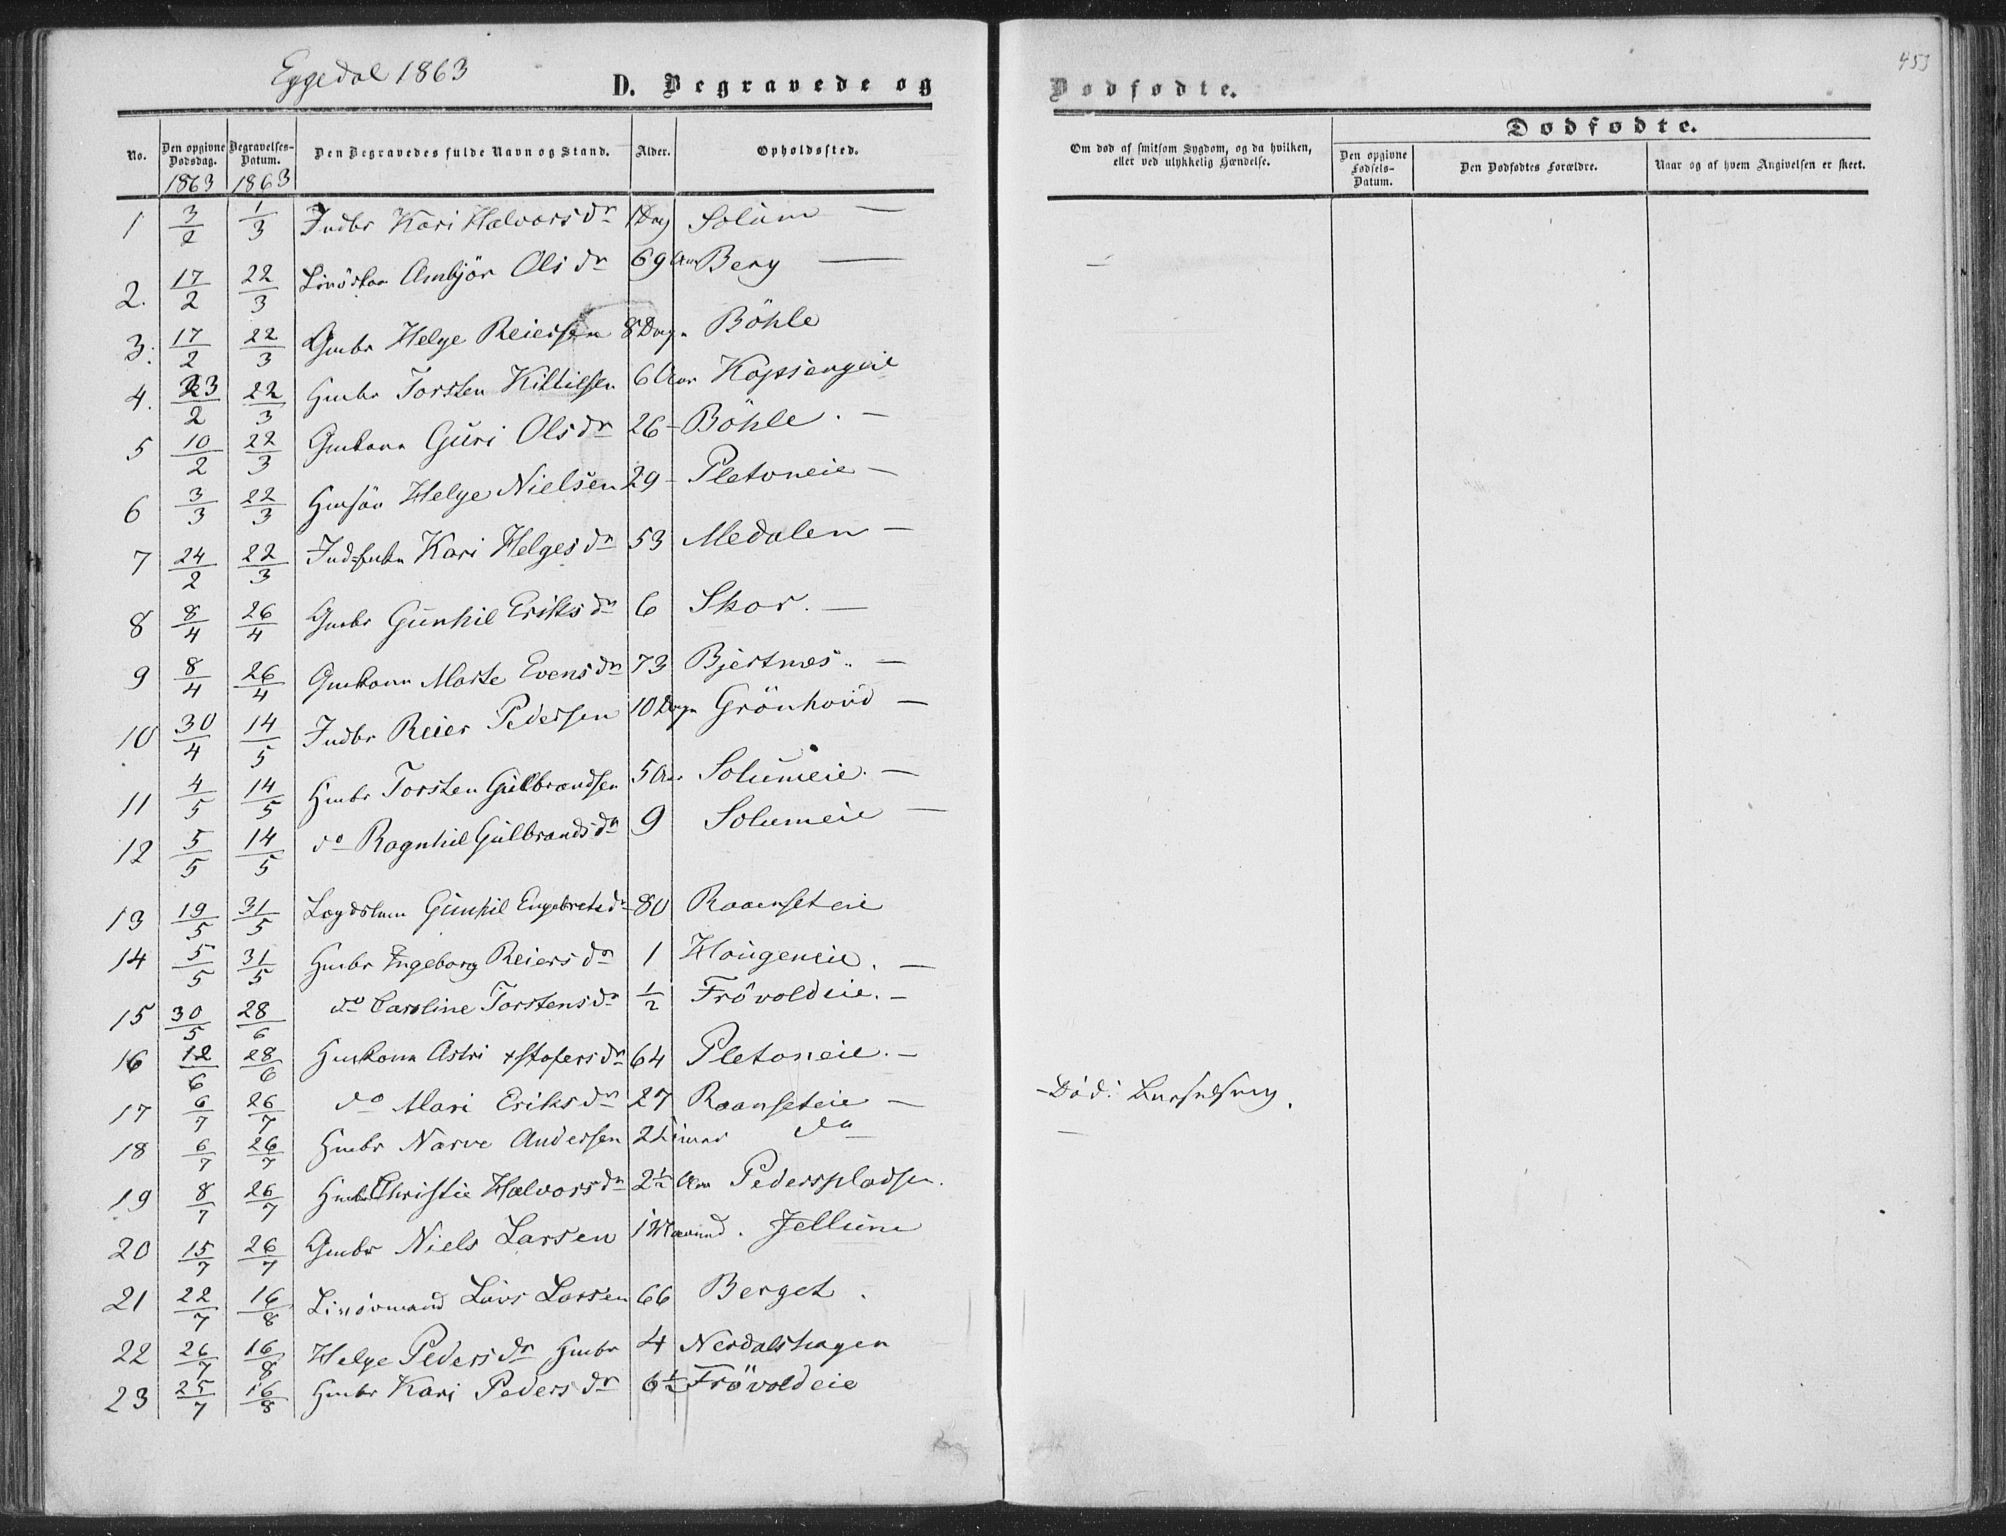 453
Eggedal 1863
D. Begravede og
Dødfødte.
No. Den opgivne Dødsdag. 1863 Begravelses-Datum. 1863 Den Begravedes fulde Navn og Stand. Alder. Opholdssted.
Om død af smitsom Sygdom, og da hvilken, eller ved ulykkelig Hændelse.
Dødfødte.
Den opgivne Fødsels-Datum. Den Dødfødtes Forældre. Naar og af hvem Angivelsen er skeet.
1 3/2 1/3 Indbr Kari Halvorsdr 1 Dag Solum —
2. 17/2 22/3 Ambjör Olsdr 69 Aar Berg —
3. 17/2 22/3 Gmbr Helge Reiersen 8 Dage Böhle
4. 23/2 22/3 Hmbr Torsten Kittilsen 6 Aar Kopsengeie
5 10/2 22/3 Gmkone Guri Olsdr 26 - Böhle. —
6 3/3 22/3 Hmsön Helge Nielsen 29 - Pletoneie —
7 24/2 22/3 Kari Helgesdr 53 Medalen —
8 8/4 26/4 Gmbr Gunhil Eriksdr 6 Skor. —
9 8/4 26/4 Gmkone Marte Evensdr 73 Bjertnes.. —
10 30/4 14/5 Indbr Reier Pedersen 10 Dage Grönhovd —
11 4/5 14/5 Hmbr Torsten Gulbrandsen 5 Aar Solumeie. —
12 5/5 14/5 do Ragnhil Gulbrandsdr 9 Solumeie —
13 19/5 31/5 Lægdslem Gunhil Engebretsdr 80 Raaenseteie
14 5/5 31/5 Hmbr Ingeborg Reiersdr 1 Haugeneie. —
15 30/5 28/6 do Caroline Torstensdr 1/2 Frövoldeie. —
16 12/6 28/6 Hmkone Astri xstofersdr 64 Pletoneie. —
17 6/7 26/7 do Mari Eriksdr 27 Raanseteie — - Död i Barselseng.
18 6/7 26/7 Hmbr Narve Andersen 2 Timer do —
19 8/7 26/7 Hmbr Christie Halvorsdr 2½ Aar Pederspladsen.
20 15/7 26/7 Gmbr Niels Larsen 1 Maaned. Jellum
21 22/7 16/8 Livörmand Lars Larsen 66 Berget.
22 26/7 16/8 Helge Pedersdr Hmbr 4 Nerdalshagen
23 25/7 16/8 Hmbr Kari Pedersdr 6½ Frövoldeie